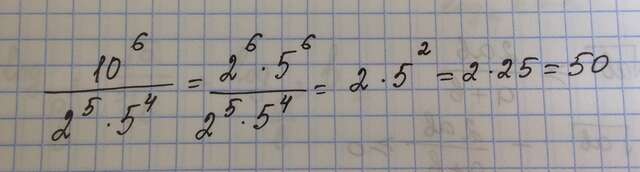 10⁶/(2⁵·5⁴) = (2⁶·5⁶)/(2⁵·5⁴) = 2·5² = 2·25 = 50